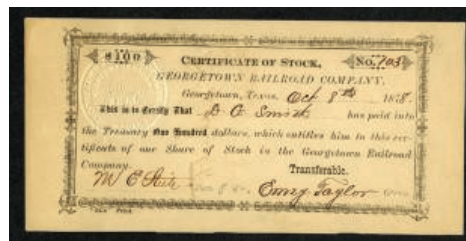 $100 CERTIFICATE OF STOCK, No. 703
GEORGETOWN RAILROAD COMPANY.
Georgetown, Texas, Oct 8th 1878.
This is to Certify That D O Smith has paid into
the Treasury One Hundred dollars, which entitles him to this cer-
tificate of one Share of Stock in the Georgetown Railroad
Company. Transferable.
M C
Emzy Taylor